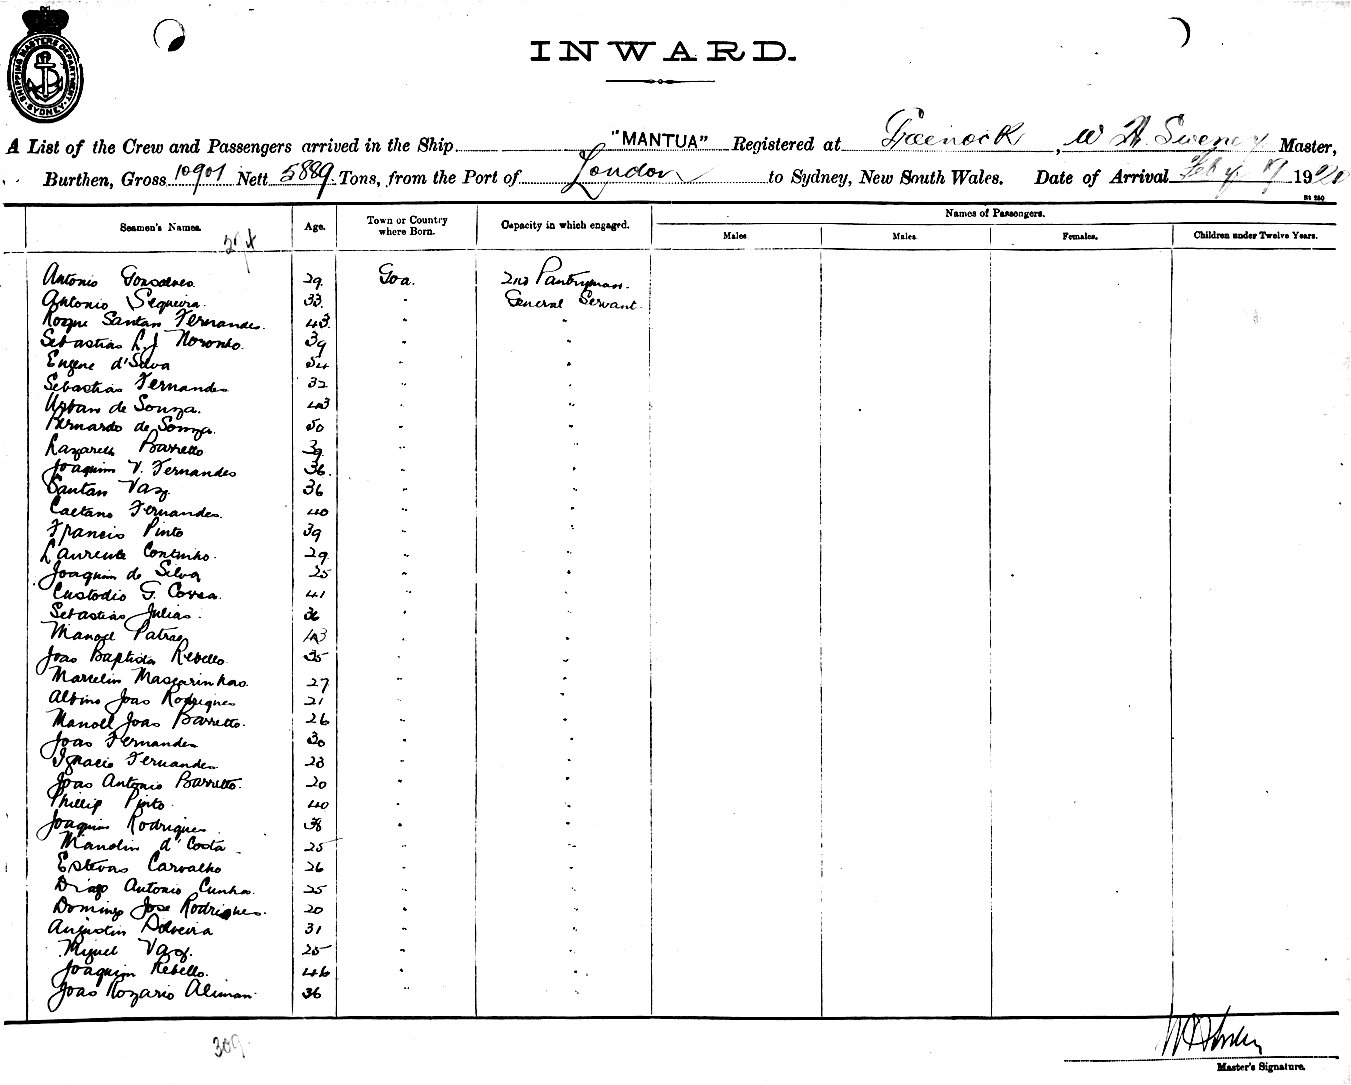 SHIPPING MASTERS DEPARTMENT. SYDNEY.
INWARD.
A List of the Crew and Passengers arrived in the Ship "MANTUA" Registered at Greenock, W Master,
Burthen, Gross 10901 Nett 5889 Tons, from the Port of London to Sydney, New South Wales. Date of Arrival Feby 1920
Seamen's Names. Age. Town or Country where Born. Capacity in which engaged. Names of Passengers.
Males Males Females. Children under Twelve Years.
Antonio Gonsalves. 29. Goa. 2nd Pantryman.
Antonio Sequeira. 33. " General Servant.
Roque Santan Fernandes. 43. " "
Sebastiao L. J Noronho. 39 " "
Eugene d'Silva 54 " "
Sebastiao Fernandes 32 " "
Urban de Souza. 43 " "
Bernardo de Souza. 50 " "
Lazarell Barretto 39 " "
Joaquim V. Fernandes 36. " "
Santan Vaz. 36 " "
Caetano Fernandes. 40 " "
Francis Pinto 39 " "
Laurente Continho. 29. " "
Joaquim de Silva 25 " "
Custodio G. Correa. 41 " "
Sebastiao Julias. 36 " "
Manoel Patrao 43 " "
Joao Baptista Rebello. 35 " "
Marcelin Mascarinhas. 27 " "
Albino Joao Rodrigues 21 " "
Manoel Joao Barretto. 26 " "
Joao Fernandes 30 " "
Ignacio Fernandes 23 " "
Joao Antonio Barretto. 20 " "
Phillip Pinto. 40 " "
Joaquim Rodrigues 38 " "
Manolin d'Costa 25 " "
Estevao Carvalho 26 " "
Diago Antonio Cunha. 25 " "
Domingo Jose Rodrigues. 20 " "
Augustin 31 " "
Miguel Vaz. 25 " "
Joaquim Rebello. 46 " "
Joao Rozario Aliman. 36 " "
309.
Master's Signature.